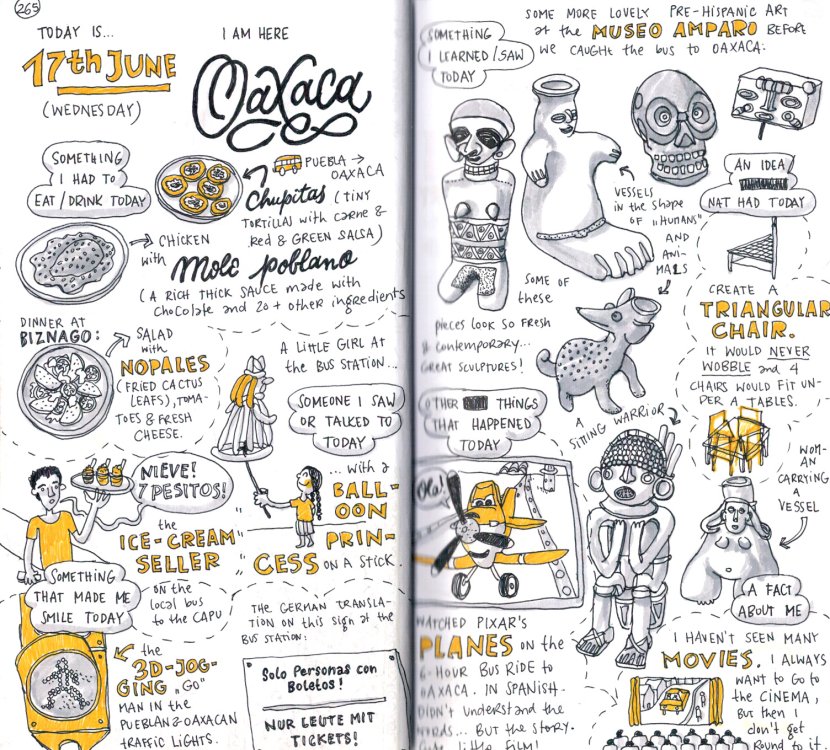 265
TODAY IS...
17th JUNE
(WEDNESDAY)
I AM HERE
Oaxaca
SOMETHING
I HAD TO
EAT/DRINK TODAY
PUEBLA →
OAXACA
Chupitas (TINY
TORTILLAS with CARNE &
Red & GREEN SALSA)
→ CHICKEN
with Mole poblano
(A RICH THICK SAUCE made with
chocolate and 20+ other ingredients
DINNER AT
BIZNAGO:
SALAD
with
NOPALES
(FRIED CACTUS
LEAFS), TOMA-
TOES & FRESH
CHEESE.
A LITTLE GIRL AT
the BUS STATION...
SOMEONE I SAW
OR TALKED TO
TODAY
... with a
BALL-
OON
PRIN-
CESS ON A STICK.
NIEVE!
7 PESITOS!
the
"ICE-CREAM
SELLER"
on the
local bus
to the CAPU
SOMETHING
THAT MADE ME
SMILE TODAY
the
3D-JOG-
GING „GO"
MAN IN the
PUEBLAN & OAXACAN
TRAFFIC LIGHTS.
THE GERMAN TRANSLA-
TION ON this SIGN at the
BUS STATION:
Solo Personas con
Boletos!
NUR LEUTE MIT
TICKETS!
SOMETHING
I LEARNED/SAW
TODAY
SOME MORE LOVELY PRE-HISPANIC ART
at the MUSEO AMPARO BEFORE
WE CAUGHT the BUS TO OAXACA:
VESSELS
IN the SHAPE
OF „HUMANS"
AND
ANI-
MALS
SOME OF
these
PIECES LOOK SO FRESH
& contemporary...
GREAT SCULPTURES!
AN IDEA
NAT HAD TODAY
CREATE A
TRIANGULAR
CHAIR.
IT WOULD NEVER
WOBBLE and 4
CHAIRS WOULD FIT UN-
DER A TABLES.
OTHER THINGS
THAT HAPPENED
TODAY
Ola!
A
SITTING WARRIOR
WOM-
AN
CARRYING
A
VESSEL
WATCHED PIXAR'S
PLANES ON the
6-HOUR BUS RIDE to
OAXACA. IN SPANISH.
DIDN'T UNDERSTAND the
WORDS... BUT the STORY.
Cute little Film!
A FACT
ABOUT ME
I HAVEN'T SEEN MANY
MOVIES. I ALWAYS
WANT to GO to
the CINEMA,
But then I
don't get
Round to it